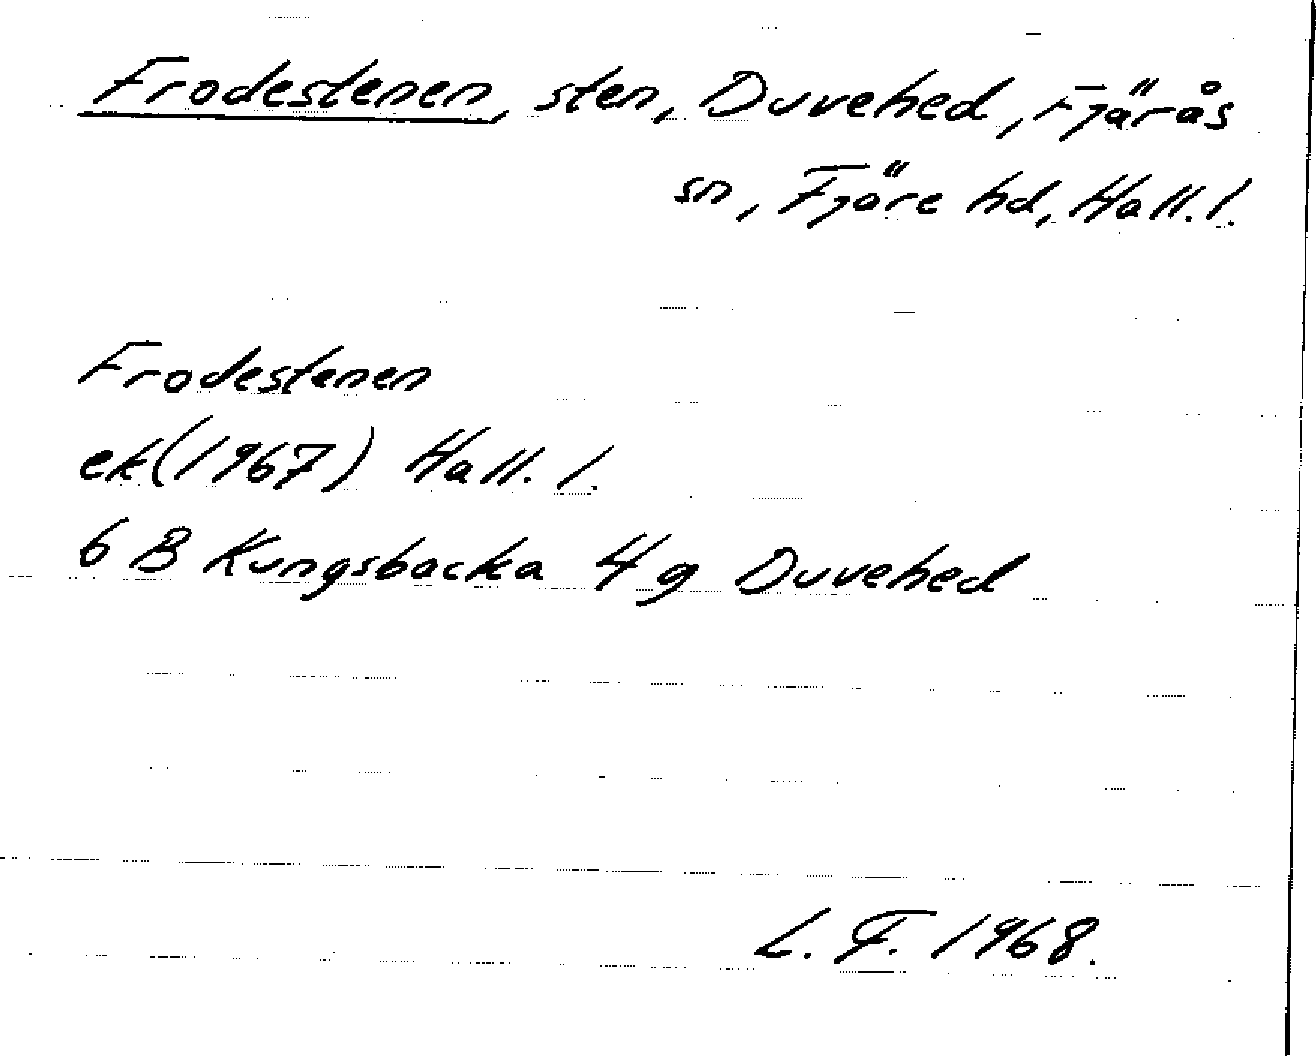 Frodestenen, sten, Duvehed, Fjärås
sn, Fjäre hd, Hall. l.
Frodestenen
ek (1967) Hall. l.
6 B Kungsbacka 4 g Duvehed
L. F. 1968.